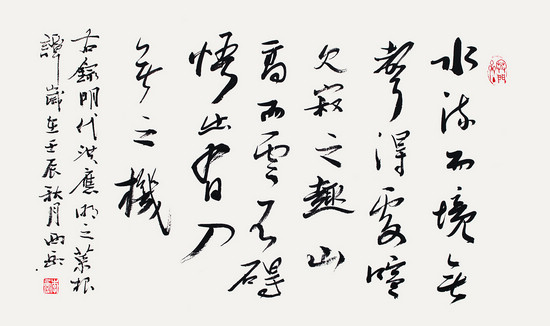 水流而境无
聲得處喧
见寂之趣山
高而雲不碍
悟出有入
无之機
右錄明代洪應明之菜根
譚歲在壬辰秋月